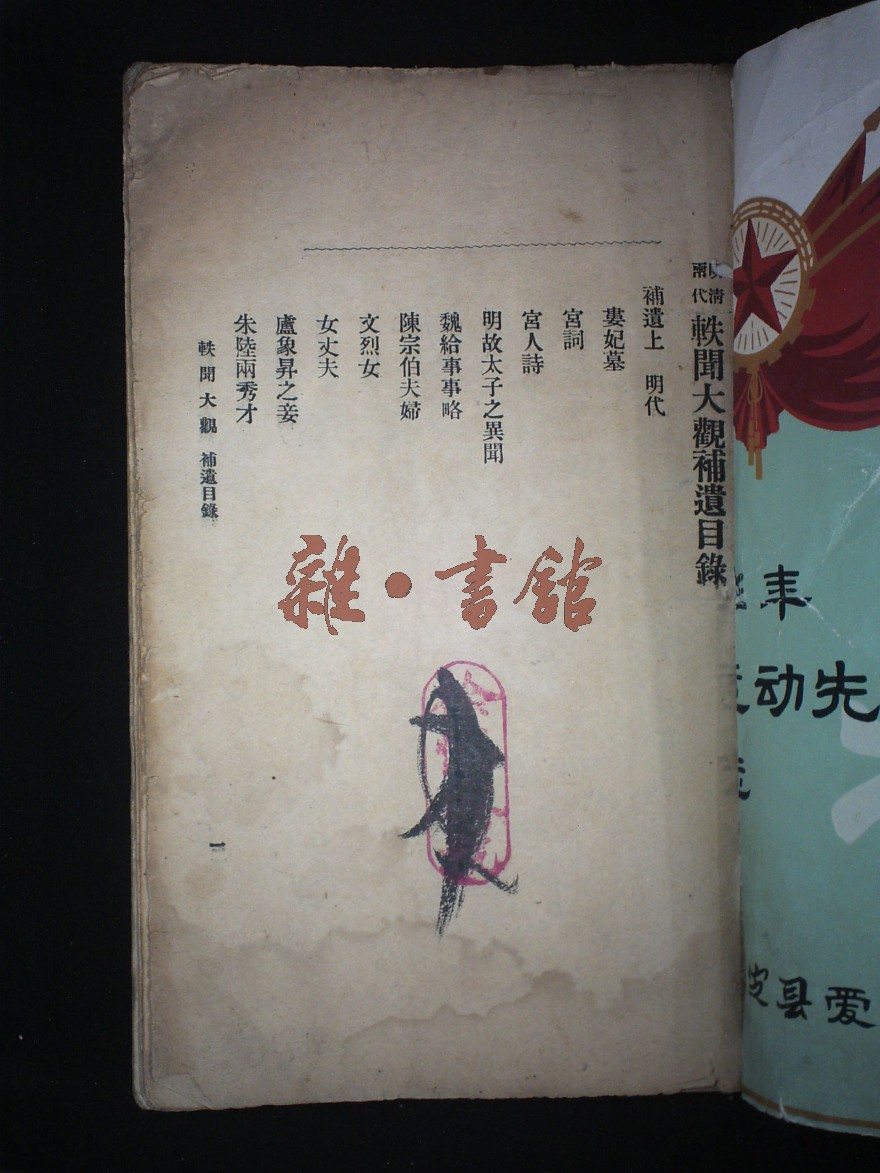 明清兩代軼聞大觀補遺目錄
補遺上　明代
婁妃墓
宮詞
宮人詩
明故太子之異聞
魏給事事略
陳宗伯夫婦
文烈女
女丈夫
盧象昇之妾
朱陸兩秀才
軼聞大觀　補遺目錄
一
雜·書館
动先
县爱